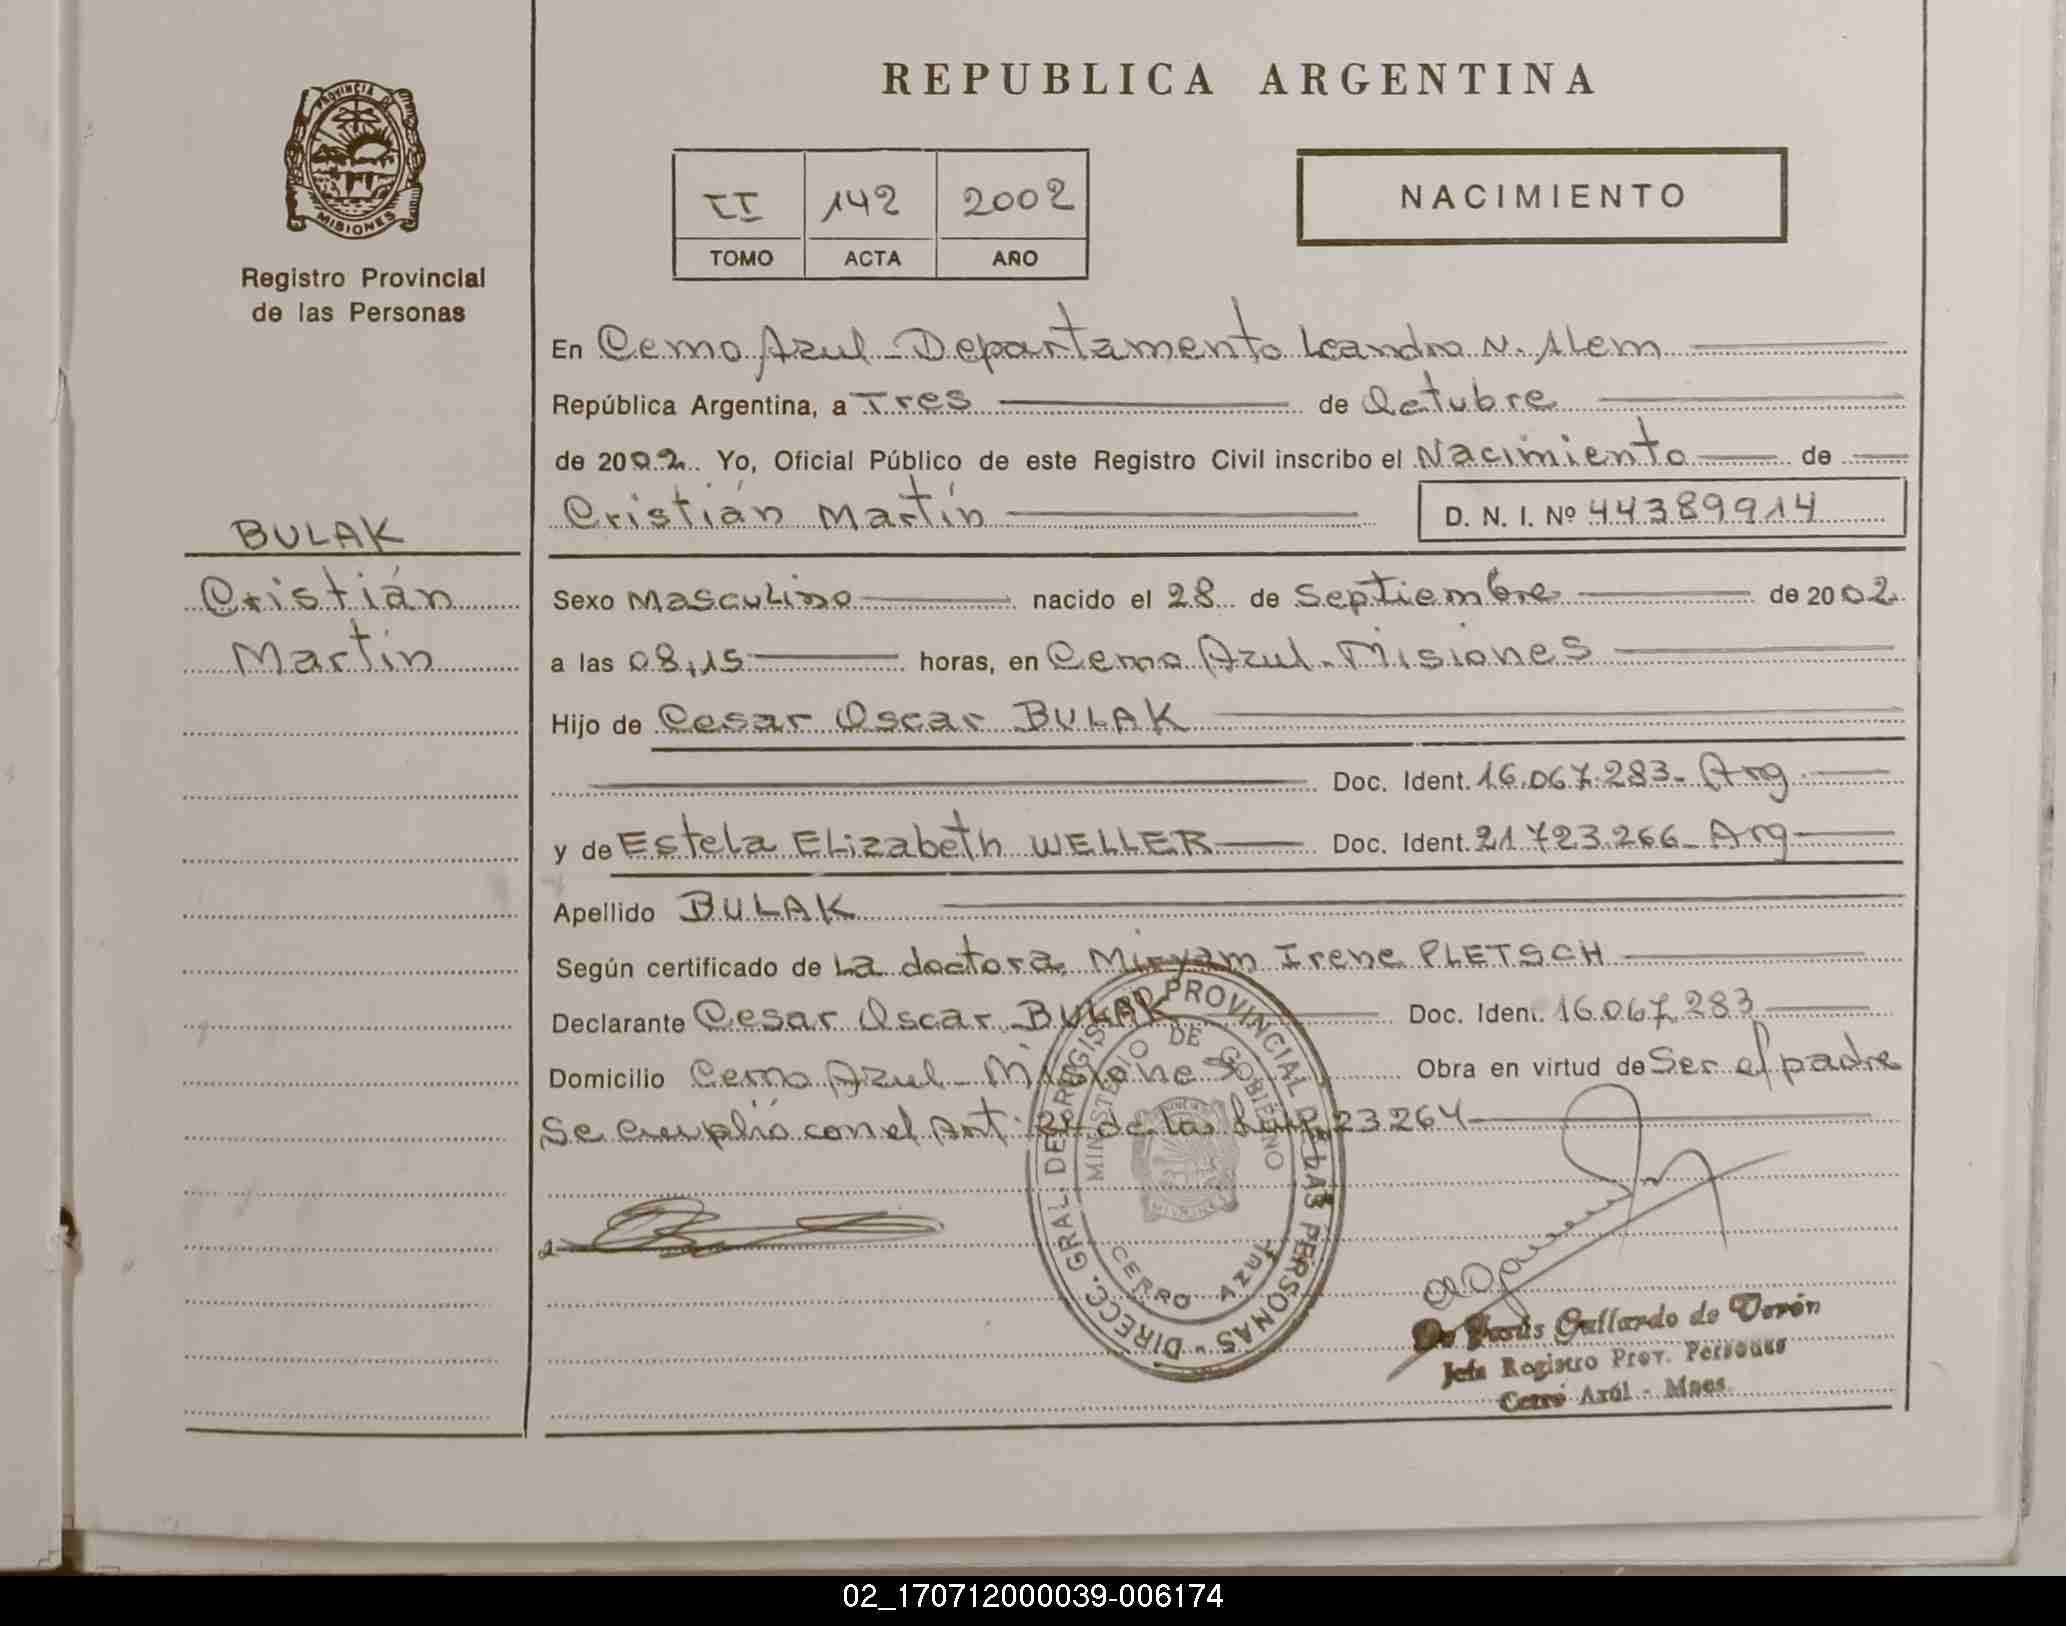 REPUBLICA ARGENTINA
PROVINCIA DE
MISIONES
Registro Provincial
de las Personas
II 142 2002
TOMO ACTA AÑO
NACIMIENTO
En Cerro Azul - Departamento Leandro N. Alem
República Argentina, a Tres de Octubre
de 2002. Yo, Oficial Público de este Registro Civil inscribo el Nacimiento de
Cristián Martín D. N. I. Nº 44389914
BULAK
Cristián
Martín
Sexo Masculino nacido el 28 de Septiembre de 2002
a las 08,15 horas, en Cerro Azul - Misiones
Hijo de Cesar Oscar BULAK
Doc. Ident. 16.067.283 - Arg
y de Estela Elizabeth WELLER Doc. Ident. 21.723.266 - Arg
Apellido BULAK
Según certificado de La doctora Miryam Irene PLETSCH
Declarante Cesar Oscar BULAK Doc. Ident. 16.067.283
Domicilio Cerro Azul - Misiones Obra en virtud de Ser el padre
Se cumplió con el Art. de la 23.264
DIRECC. GRAL. DE REGISTRO PROVINCIAL DE LAS PERSONAS -
MINISTERIO DE GOBIERNO
CERRO AZUL
Jesús Gallardo de Verón
Jefa Registro Prov. Personas
Cerro Azúl - Mnes.
02_170712000039-006174